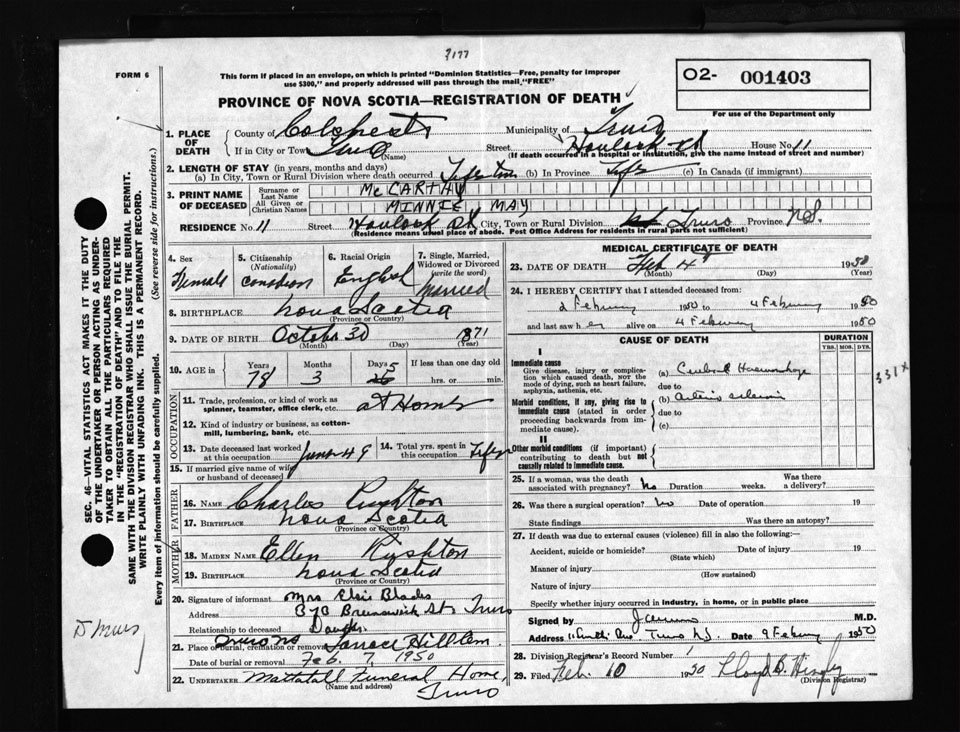 3177
FORM 6
This form if placed in an envelope, on which is printed "Dominion Statistics—Free, penalty for improper
use $300," and properly addressed will pass through the mail "FREE"
O2- 001403
PROVINCE OF NOVA SCOTIA—REGISTRATION OF DEATH
For use of the Department only
1. PLACE OF DEATH
County of Colchester Municipality of Truro
If in City or Town Truro (Name) Street Havelock St House No. 11
(If death occurred in a hospital or institution, give the name instead of street and number)
2. LENGTH OF STAY (in years, months and days)
(a) In City, Town or Rural Division where death occurred Life time (b) In Province Life (c) In Canada (if immigrant)
3. PRINT NAME OF DECEASED
Surname or Last Name McCARTHY
All Given or Christian Names MINNIE MAY
RESIDENCE No. 11 Street Havelock St City, Town or Rural Division Truro Province N.S.
(Residence means usual place of abode. Post Office Address for residents in rural parts not sufficient)
4. Sex Female
5. Citizenship (Nationality) Canadian
6. Racial Origin English
7. Single, Married, Widowed or Divorced (write the word) Married
8. BIRTHPLACE Nova Scotia
(Province or Country)
9. DATE OF BIRTH October 30 1871
(Month) (Day) (Year)
10. AGE in Years 78 Months 3 Days 5 If less than one day old
hrs. or min.
OCCUPATION
11. Trade, profession, or kind of work as
spinner, teamster, office clerk, etc. at Home
12. Kind of industry or business, as cotton-
mill, lumbering, bank, etc.
13. Date deceased last worked at this occupation June 49
14. Total yrs. spent in this occupation Life
15. If married give name of wife
or husband of deceased
FATHER
16. NAME Charles
17. BIRTHPLACE Nova Scotia
(Province or Country)
MOTHER
18. MAIDEN NAME Ellen Rushton
19. BIRTHPLACE Nova Scotia
(Province or Country)
20. Signature of informant Mrs Elsie Blades
Address Brunswick St. Truro
Relationship to deceased Daughter
21. Place of burial, cremation or removal
Date of burial or removal Feb. 7, 1950
22. UNDERTAKER Mattatall Funeral Home,
(Name and address)
Truro
MEDICAL CERTIFICATE OF DEATH
23. DATE OF DEATH Feb 4 1950
(Month) (Day) (Year)
24. I HEREBY CERTIFY that I attended deceased from:
2 February 1950 to 4 February 1950
and last saw her alive on 4 February 1950
CAUSE OF DEATH
DURATION
YRS. MOS. DYS.
I
Immediate cause
Give disease, injury or complica-
tion which caused death, nor the
mode of dying, such as heart failure,
asphyxia, asthenia, etc.
(a) Cerebral Haemorrhage
due to
Morbid conditions, if any, giving rise to
immediate cause (stated in order
proceeding backwards from im-
mediate cause).
(b) Arterio sclerosis
due to
(c)
331x
II
Other morbid conditions (if important)
contributing to death but not
causally related to immediate cause.
25. If a woman, was the death
associated with pregnancy? No Duration weeks. Was there a delivery?
26. Was there a surgical operation? No Date of operation 19
State findings Was there an autopsy?
27. If death was due to external causes (violence) fill in also the following:—
Accident, suicide or homicide? Date of injury 19
(State which)
Manner of injury
(How sustained)
Nature of injury
Specify whether injury occurred in industry, in home, or in public place
Signed by M.D.
Address Truro N.S. Date 9 February 1950
28. Division Registrar's Record Number
29. Filed Feb. 10 1950 Lloyd B.
(Division Registrar)
SEC. 46—VITAL STATISTICS ACT MAKES IT THE DUTY
OF THE UNDERTAKER OR PERSON ACTING AS UNDER-
TAKER TO OBTAIN ALL THE PARTICULARS REQUIRED
IN THE "REGISTRATION OF DEATH" AND TO FILE THE
SAME WITH THE DIVISION REGISTRAR WHO SHALL ISSUE THE BURIAL PERMIT.
WRITE PLAINLY WITH UNFADING INK. THIS IS A PERMANENT RECORD.
Every item of information should be carefully supplied. (See reverse side for instructions.)